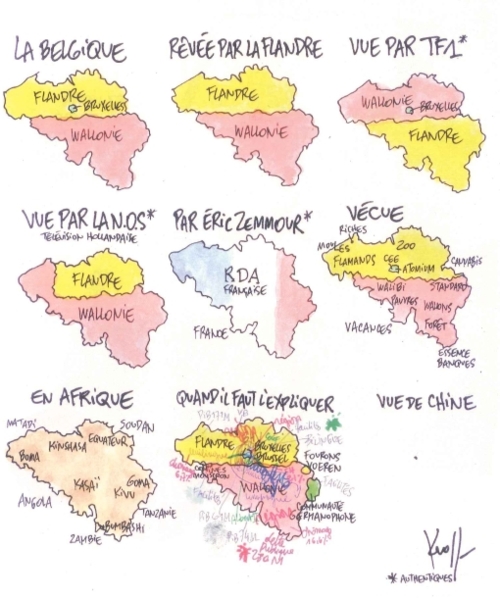 LA BELGIQUE
FLANDRE
BRUXELLES
WALLONIE
RÊVÉE PAR LA FLANDRE
FLANDRE
WALLONIE
VUE PAR TF1*
WALLONIE
BRUXELLES
FLANDRE
VUE PAR LA N.O.S*
TÉLÉVISION HOLLANDAISE
FLANDRE
WALLONIE
PAR ÉRIC ZEMMOUR*
RDA
FRANÇAISE
FRANCE
VÉCUE
RICHES
MOULES
ZOO
FLAMANDS
CEE
ATOMIUM
CANNABIS
WALIBI
STANDARD
PAUVRES
WALLONS
VACANCES
FORÊT
ESSENCE
BANQUES
EN AFRIQUE
MATADI
SOUDAN
EQUATEUR
KINSHASA
BOMA
KASAÏ
GOMA
KIVU
ANGOLA
TANZANIE
LUBUMBASHI
ZAMBIE
QUAND IL FAUT L'EXPLIQUER
FLANDRE
BRUXELLES
BRUSSEL
BILINGUE
FOURONS
VOEREN
WALLONIE
COMMUNAUTÉ
GERMANOPHONE
VUE DE CHINE
Kroll
* AUTHENTIQUES